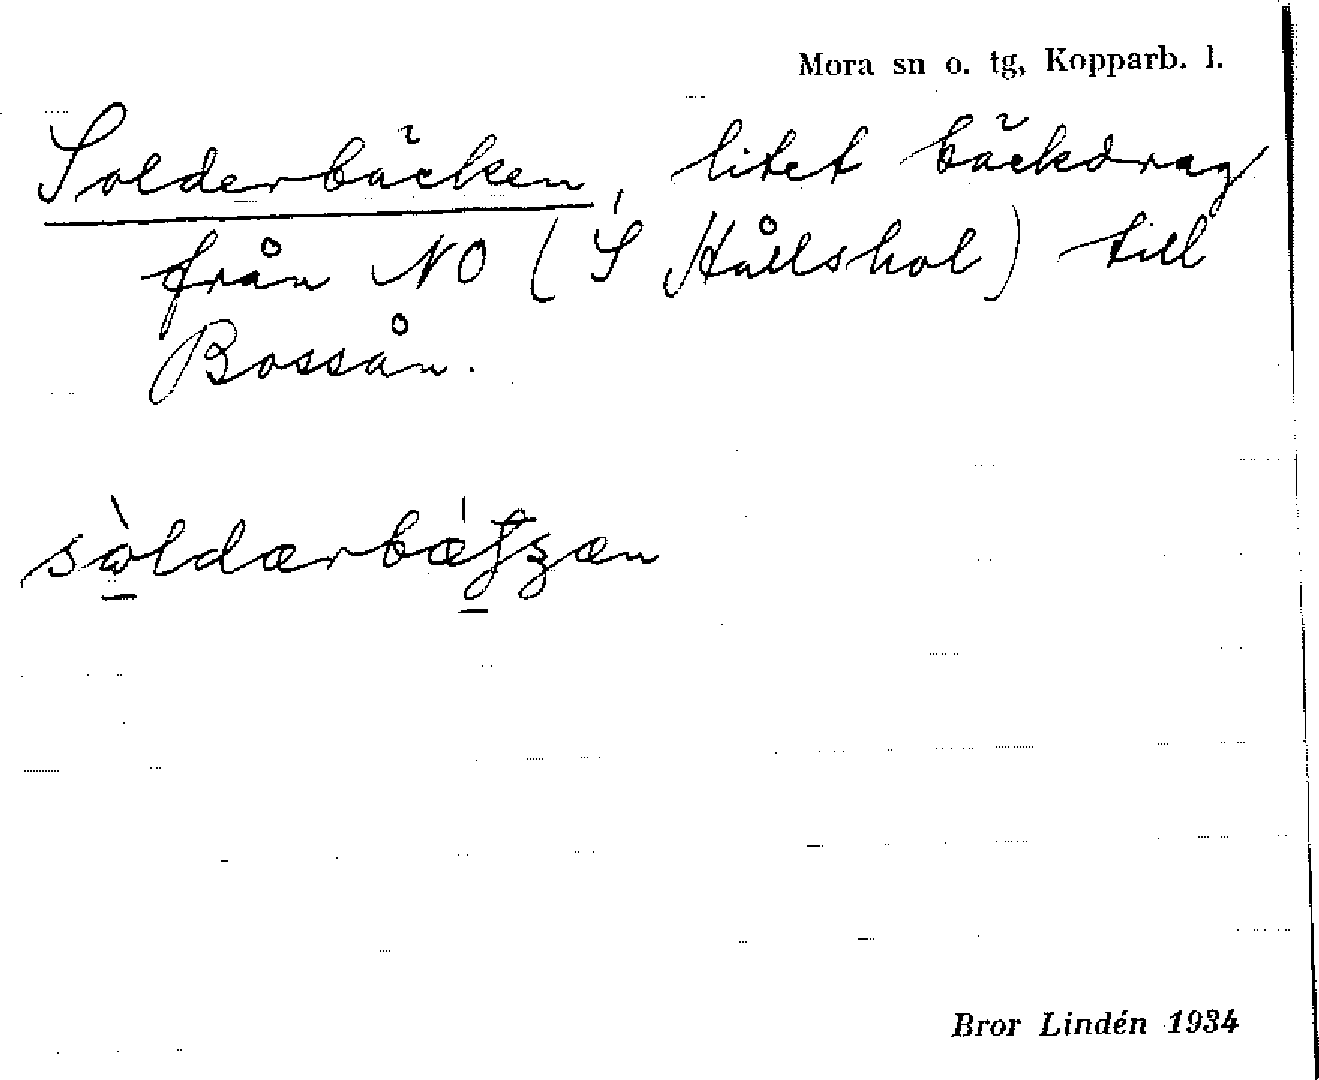 Mora sn o. tg, Kopparb. l.
Solderbäcken, litet bäckdrag
från NO (S Hållshol) till
Bossån.
Bror Lindén 1934